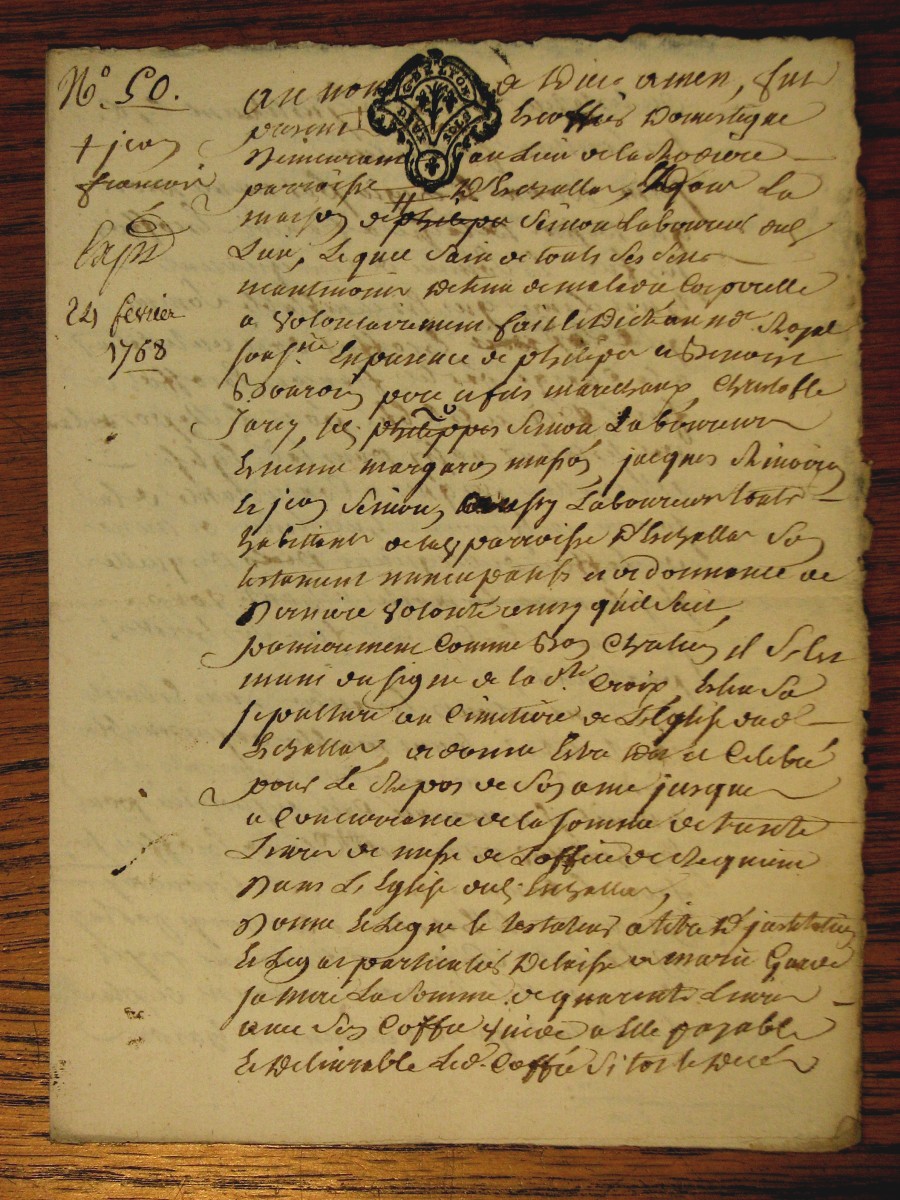 N.º 50.
+ jean
francois
Exp.d
24 fevrier
1768
G. DE LYON
DEUX SOLS
Au nom de Dieu amen, fut
present + Escoffier Domestique
Demeurant au Lieu de la
parroisse d'Echallas, dans La
maison de philipe Simon Laboureur dud.
Lieu, Lequel Sain de touts Ses Sens
maintenant detenu de maladie Corporelle
a volontairement fait Et dicté au no.re Royal
sous.né En presence de philipe et Benoist
pere et fils marechaux, Christofle
Jarey, led. philippes Simon Laboureur
Etienne margaron masson, jacques
Et jean Simon aussy Laboureur touts
habittants de lad. parroisse d'Echallas Son
testament nuncupatif et ordonnance de
Derniere volonté ainsy qu'il Suit
premierement Comme Bon Chretien il S'est
muni du signe de la S.te Croix, Eslu Sa
sepulture au Cimetiere de L'Eglise dud.
Echallas, ordonne Estre Dit et Celebré
pour Le Repos de Son ame jusques
a Concurrance de la somme de trente
Livres de messe de L'office de Requiem
Dans L'Eglise dud. Echallas,
Donne Et Legue le testateur a titre D'institution
Et Legat particulier Delaissé a marie Garde
sa mere La Somme de quarente Livres
avec Son Coffre a Elle payable
Et Delivrable Led. Coffre Sitot le Decés